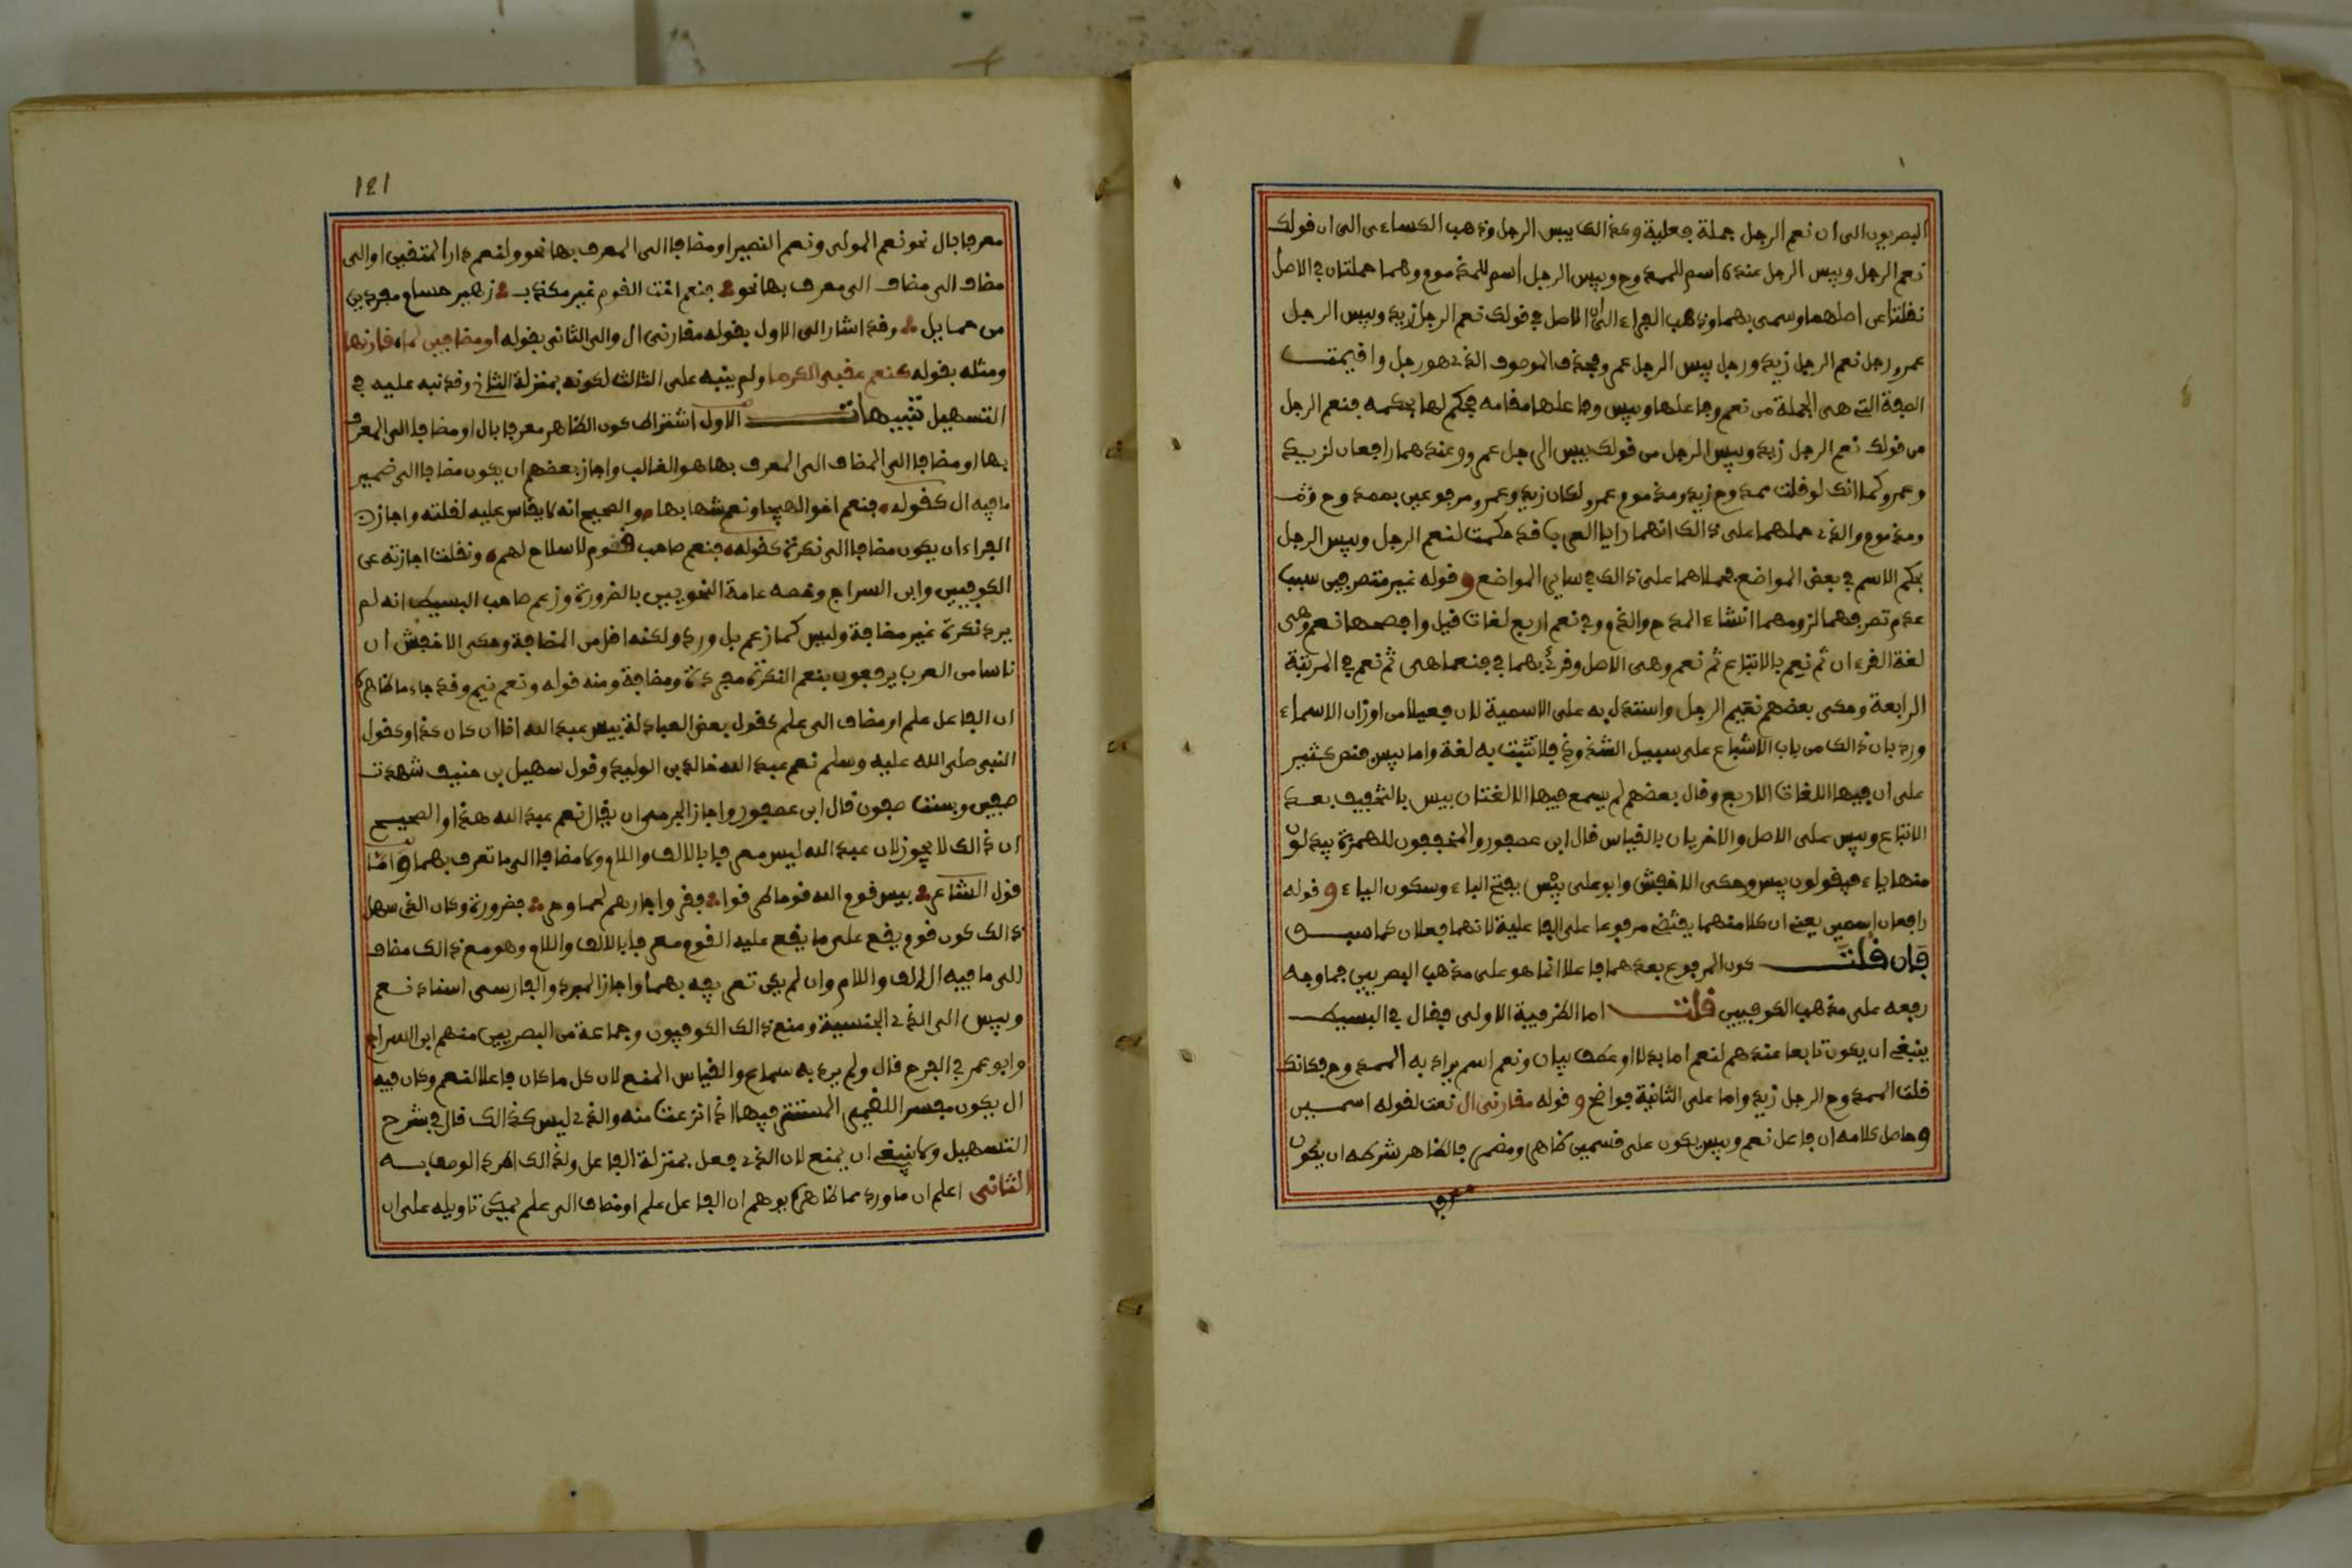 البصريون الى ان نعم الرجل جملة فعلية وكذالك بيس الرجل وذهب الكساءى الى ان قولك
نعم الرجل وبيس الرجل عنده اسم للممدوح وبيس الرجل اسم للمذموم وهما جملتان في الاصل
نقلتا عن اصلهما وسمى بهما وذهب الفراء الى ان الاصل في قولك نعم الرجل زيد وبيس الرجل
عمرو رجل نعم الرجل زيد ورجل بيس الرجل عمرو فحذف الموصوف الذي هو رجل واقيمت
الصفة التي هى الجملة من نعم وفاعلها وبيس وفاعلها مقامه فحكم لها بحكمه فنعم الرجل
من قولك نعم الرجل زيد وبيس الرجل من قولك بيس الرجل عمرو وعندهما رافعان لزيد
وعمرو كما انك لو قلت ممدوح زيد ومذموم عمرو لكان زيد وعمرو مرفوعين بممدوح
ومذموم والذي حملهما على ذالك انهما رايا العرب قد حكمت لنعم الرجل وبيس الرجل
بحكم الاسم في بعض المواضع فحملاهما على ذالك في ساير المواضع و قوله غير متصرفين سبب
عدم تصرفهما لزومهما انشاء المدح والذم وفي نعم اربع لغات قيل وافصحها نعم وهى
لغة القرءان ثم نعم بالاتباع ثم نعم وهى الاصل وقرئ بهما في فنعما هى ثم نعم في المرتبة
الرابعة وحكى بعضهم نعيم الرجل واستدل به على الاسمية لان فعيلا من اوزان الاسماء
ورد بان ذالك من باب الاشباع على سبيل الشذوذ فلا تثبت به لغة واما بيس فنص كثير
على ان فيها اللغات الاربع وقال بعضهم لم يسمع فيها الا لغتان بيس بالتخفيف بعد
الاتباع وبيس على الاصل والاخريان بالقياس قال ابن عصفور والمخففون للهمزة يبدلون
منها ياء فيقولون بيس وحكى الاخفش وابو على بيس بفتح الباء وسكون الياء و قوله
رافعان اسمين يعني ان كلا منهما يقتضى مرفوعا على الفاعلية لانهما فعلان كما سبق
فان قلت كون المرفوع بعدهما فاعلا انما هو على مذهب البصريين فما وجه
رفعه على مذهب الكوفيين قلت اما الطريقة الاولى فقال في البسيط
ينبغي ان يكون تابعا عندهم لنعم اما بدلا او عطف بيان ونعم اسم يراد به الممدوح فكانك
قلت الممدوح الرجل زيد واما على الثانية فواضح و قوله مقارنى ال نعت لقوله اسمين
وحاصل كلامه ان فاعل نعم وبيس يكون على قسمين ظاهر ومضمر فالظاهر شرطه ان يكون
معرفا
121
معرفا بال نحو نعم المولى ونعم النصير او مضافا الى المعرف بها نحو ولنعم دار المتقين او الى
مضاف الى مضاف الى معرف بها نحو فنعم ابن اخت القوم غير مكذب زهير حسام مفرد من
من حمايل وقد اشار الى الاول بقوله مقارنى ال والى الثانى بقوله او مضافين لما قارنها
ومثله بقوله كنعم عقبى الكرما ولم ينبه على الثالث لكونه بمنزلة الثاني وقد نبه عليه في
التسهيل تنبيهات الاول اشتراط كون الظاهر معرفا بال او مضافا الى المعرف
بها او مضافا الى المضاف الى المعرف بها هو الغالب واجاز بعضهم ان يكون مضافا الى ضمير
ما فيه ال كقوله فنعم اخو الهيجا ونعم شهابها والصحيح انه لا يقاس عليه لقلته واجاز
الفراء ان يكون مضافا الى نكرة كقوله فنعم صاحب قوم لا سلاح لهم ونقلت اجازته عن
الكوفيين وابن السراج وخصه عامة النحويين بالضرورة وزعم صاحب البسيط انه لم
يرد نكرة غير مضافة وليس كما زعم بل ورد ولكنه اقل من المضافة وحكى الاخفش ان
ناسا من العرب يرفعون بنعم النكرة مفردة ومضافة ومنه قوله ونعم نيم وقد جاء ما ظاهره
ان الفاعل علم او مضاف الى علم كقول بعض العبادلة بيس عبد الله انا ان كان كذا وكقول
النبى صلى الله عليه وسلم نعم عبد الله خالد بن الوليد وقول سهيل بن حنيف شهدت
صفين وبيست صفون قال ابن عصفور واجاز الجرمى ان يقال نعم عبد الله هذا والصحيح
ان ذالك لا يجوز لان عبد الله ليس معرفا بالالف واللام ولا مضافا الى ما تعرف بهما واما
قول الشاعر بيس قوم الله قوم طرقوا فقروا جارهم لحما وحر فضرورة وكان الذي سهل
ذالك كون قوم يقع على ما يقع عليه القوم معرفا بالالف واللام وهو مع ذالك مضاف
الى ما فيه الالف واللام وان لم يكن تعريفه بهما واجاز المبرد والفارسى اسناد نعم
وبيس الى الذي الجنسية ومنع ذالك الكوفيون وجماعة من البصريين منهم ابن السراج
وابو عمر في الفرح قال ولم يرد به سماع والقياس المنع لان كل ما كان فاعلا لنعم وكان فيه
ال يكون مفسرا للضمير المستتر فيها اذا نزعت منه والذي ليس كذالك قال في شرح
التسهيل ولا ينبغي ان يمنع لان الذي جعل بمنزلة الفاعل ولذالك اطرد الوصف به
الثانى اعلم ان ما ورد مما ظاهره يوهم ان الفاعل علم او مضاف الى علم يمكن تاويله على ان